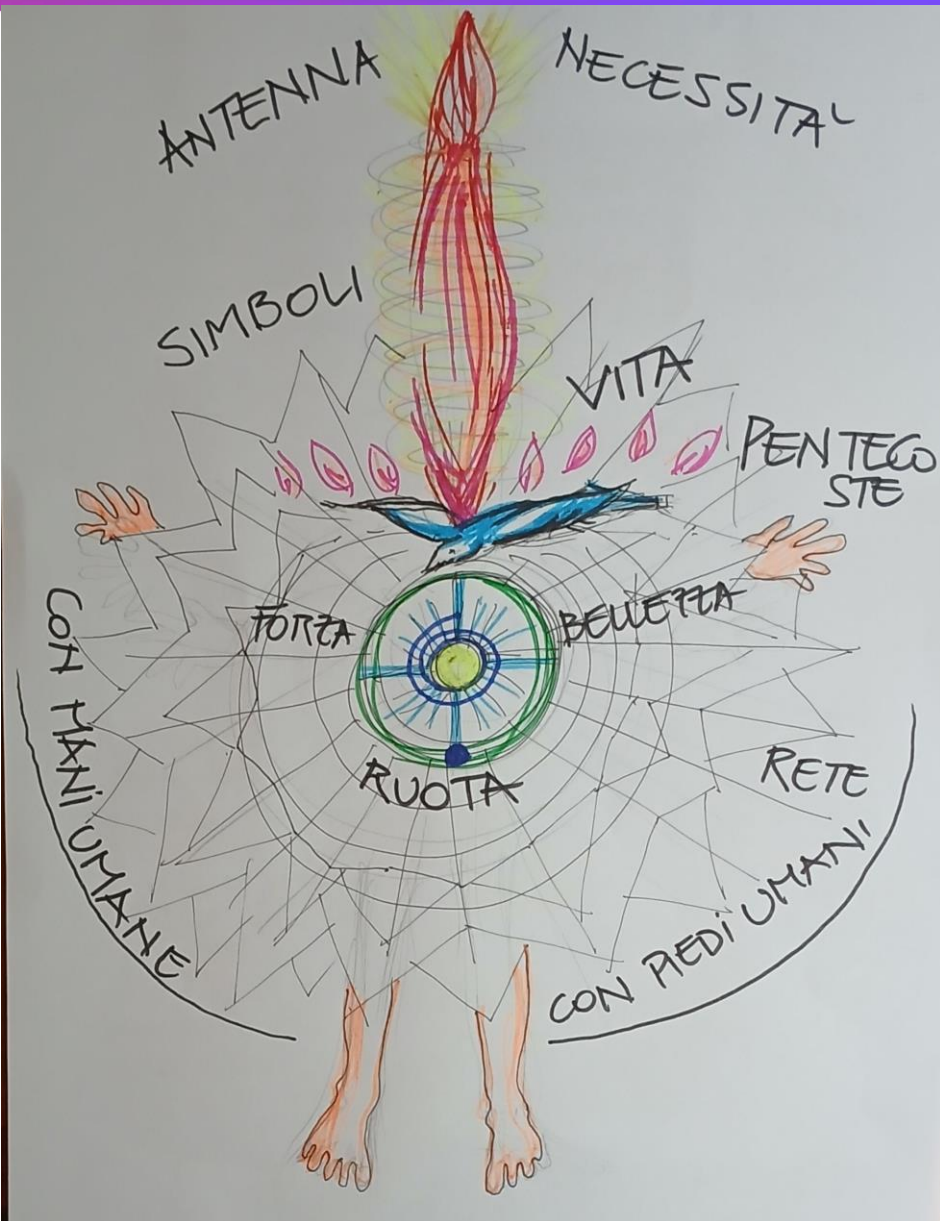 ANTENNA
NECESSITA'
SIMBOLI
VITA
PENTECO
STE
FORZA
BELLEZZA
RUOTA
RETE
CON MANI UMANE
CON PIEDI UMANI